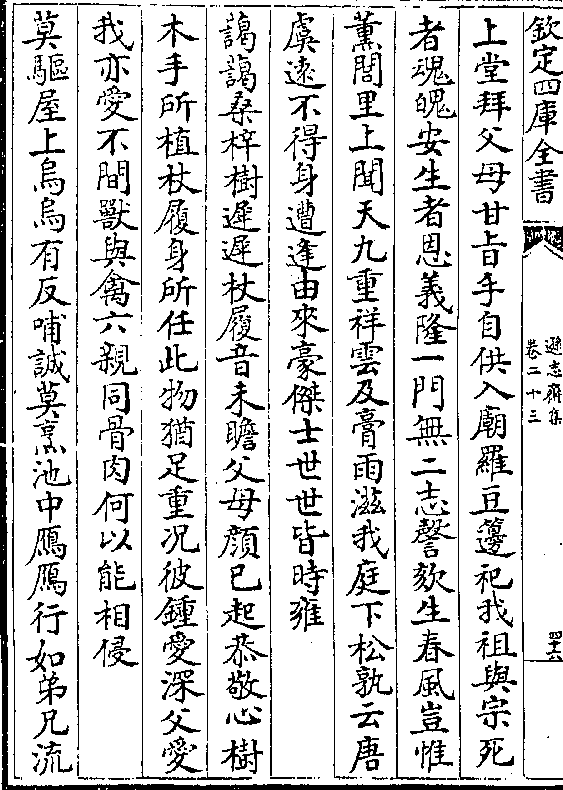 欽定四庫全書
遜志齋集
卷二十三
四十六
上堂拜父母甘旨手自供入廟羅豆籩祀我祖與宗死
者魂魄安生者恩義隆一門無二志謦欬生春風豈惟
薰閭里上聞天九重祥雲及膏雨滋我庭下松孰云唐
虞遠不得身遭逢由來豪傑士世世皆時雍
藹藹桑梓樹遲遲杖履音未瞻父母顔已起恭敬心樹
木手所植杖履身所任此物猶足重况彼鍾愛深父愛
我亦愛不間獸與禽六親同骨肉何以能相侵
莫驅屋上烏烏有反哺誠莫烹池中鴈鴈行如弟兄流